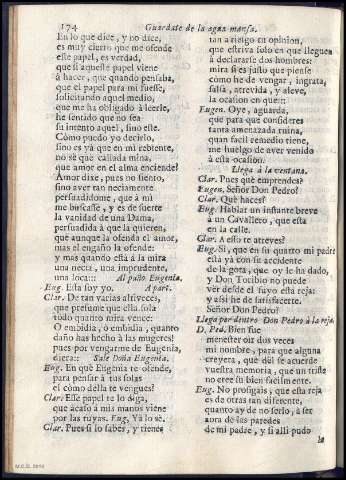 174 Guardate de la agua mansa.
En lo que dice, y no dice,
es muy cierto que me ofende
este papel, es verdad,
que si aqueste papel viene
à hacer, que quando pensaba,
que el papel para mi fuesse,
solicitando aquel medio,
que me ha obligado à leerle,
he sentido que no sea
su intento aquel, sino este.
Còmo puedo yo decirlo,
sino es yà que en mi rebiente,
no sè què callada mina,
que amor en el alma enciende?
Amor dixe, pues no siento,
sino aver tan neciamente
persuadidome, que à mi
me buscasse, y es de suerte
la vanidad de una Dama,
persuadida à que la quieren,
que aunque la ofenda el amor,
mas el engaño la ofende:
y mas quando està à la mira
una necia, una imprudente,
una loca::: Al paño Eugenia.
Eug. Esta soy yo. Apart.
Clar. De tan varias altiveces,
que presume que ella sola
todo quanto mira vence:
O embidia, ò embidia, quanto
daño has hecho à las mugeres!
pues por vengarme de Eugenia,
diera:: Sale Doña Eugenia.
Eug. En què Eugenia te ofende,
para pensar à tus solas
el còmo della te vengues?
Clar. Esse papel te lo diga,
que acaso à mis manos viene
por las tuyas. Eug. Yà lo sè.
Clar. Pues si lo sabes, y tienes
tan à riesgo tu opinion,
que estriva solo en que lleguen
à declararse dos hombres:
mira si es justo que piense
còmo he de vengar, ingrata,
falsa, atrevida, y aleve,
la ocasion en que:::
Eugen. Oye, aguarda,
que para que consideres
tanta amenazada ruina,
quan facil remedio tiene,
me huelgo de aver venido
à esta ocasion.
Llega à la ventana.
Clar. Pues què emprendes?
Eugen. Señor Don Pedro?
Clar. Què haces?
Eug. Hablar un instante breve
à un Cavallero, que està
en la calle.
Clar. A esso te atreves?
Eug. Si, que en su quarto mi padre
està yà con su accidente
de la gota, que oy le ha dado,
y Don Toribio no puede
ver desde el suyo esta reja:
y assi he de satisfacerte.
Señor Don Pedro?
Llega por dentro Don Pedro à la reja.
D. Ped. Bien fue
menester oir dos veces
mi nombre, para que alguna
creyera, que dèl se acuerde
vuestra memoria, que un triste
no cree su bien facilmente.
Eug. No prosigais, que esta reja
es de otras tan diferente,
quanto ay de no serlo, à ser
aora de las paredes
de mi padre, y si alli pudo
la